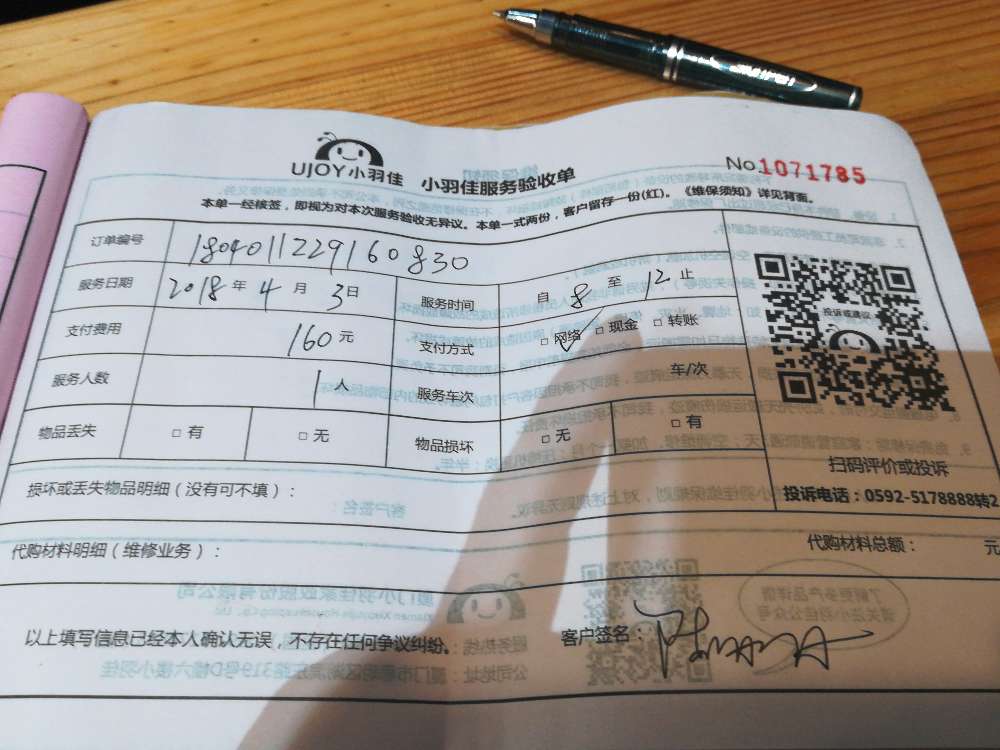 UJOY小羽佳 小羽佳服务验收单
No.1071785
本单一经核签，即视为对本次服务验收无异议。本单一式两份，客户留存一份(红)。《维保须知》详见背面。
订单编号 1804011229160830
服务日期 2018年4月3日 服务时间 自8至12止
支付费用 160元 支付方式 □网络 □现金 □转账
服务人数 1人 服务车次 车/次
物品丢失 □有 □无 物品损坏 □无 □有
投诉或建议
扫码评价或投诉
投诉电话：0592-5178888转2
损坏或丢失物品明细（没有可不填）：
代购材料明细（维修业务）： 代购材料总额： 元
以上填写信息已经本人确认无误，不存在任何争议纠纷。 客户签名：